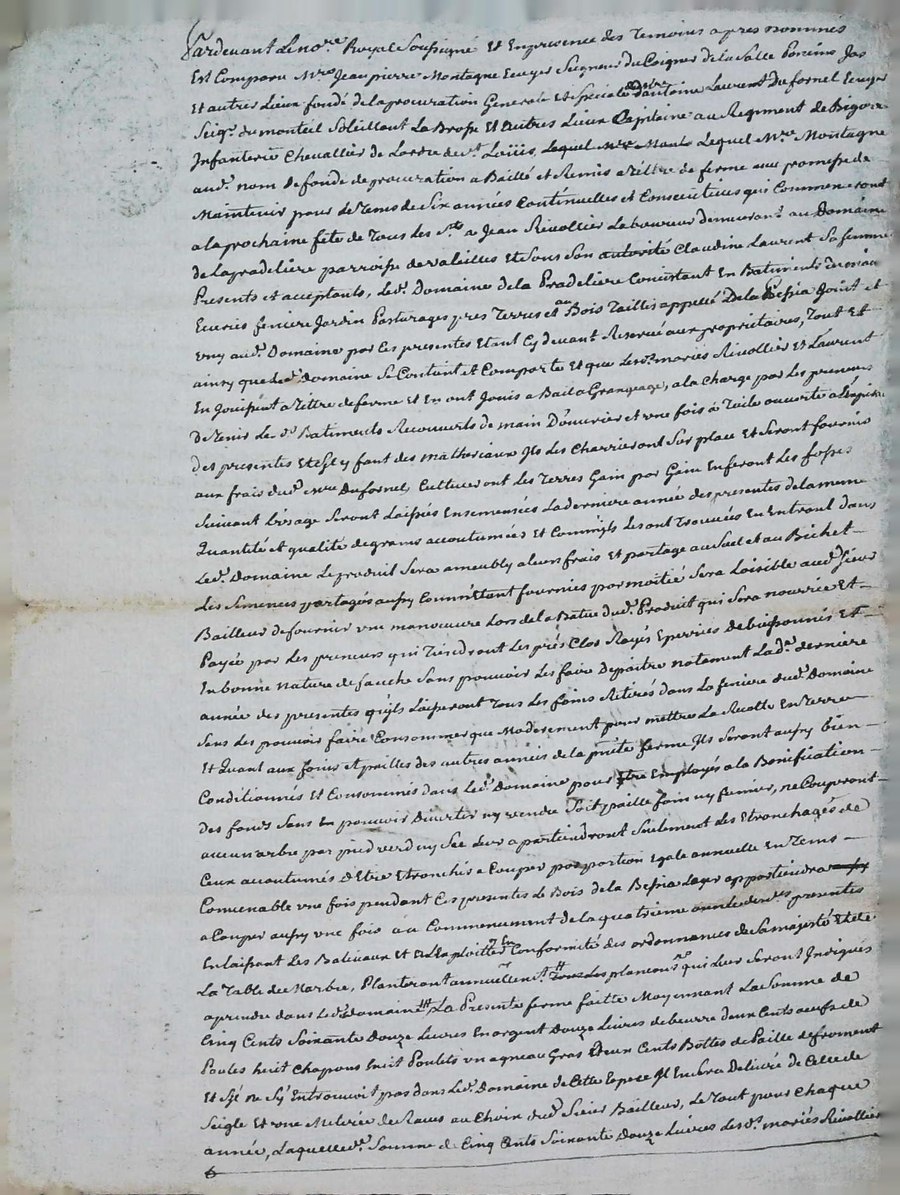 Pardevant Le no.re Royal Soussigné et En presence des Temoins apres nommés
Est Comparu M.re Jean pierre Montagne Ecuyer Seigneur Du Poigner de la Salle Poncins Jas
Et autres Lieux fondé de la procuration Generale et speciale de M.re Antoine Laurent Dufornel Ecuyer
Seig.r du monteil Soleillant La Brosse Et autres Lieux Capitaine au Regiment de Bigorre
Infanterie Chevallier de Lordre de S.t Loüis, Lequel M.re Montagne
aud.t nom De fondé de procuration a Baillé et Remis a tittre de ferme avec promesse de
Maintenir pour de tems de Six années Continuelles et Consecutives qui Commenceront
a la prochaine fête de Tous Les S.ts a Jean Rivollier Laboureur demeurant au Domaine
de Lapradeliere parroisse de valeilles et Sous Son autorité Claudine Laurent Sa femme
Presents et acceptants, Le d.t Domaine de la Pradeliere Consistant En Batiments de
Ecuries feniere Jardin Pasturages prés Terres et au Bois Taillis appellé De la Bessia Joint et
uny aud.t Domaine par Ces presentes Etant Cy devant Reservé aux proprietaires, Tout Et
ainsy que Led.t domaine Se Contient et Comporte Et que Les d.ts mariés Rivollier Et Laurent
En Jouissent a Tittre de ferme Et En ont Jouis a Bail a Grangeage, a la Charge par Les preneurs
De Tenir Les d.ts Batiments Recouverts de main D'ouvrier et une fois à Tuile ouverte a
des presentes Et s'il y faut des matheriaux Ils Les Charrieront Sur place Et Seront fournis
aux frais dud.t M.re Dufornel, Cultiveront Les Terres Gain par Gain En feront Les fosses
Suivant L'usage Seront Laissées Ensemencées La derniere année des presentes de la meme
Quantité et qualité de grains accoutumées et Comm'ils Les ont Trouvées En Entrant dans
Led.t Domaine Le produit Sera ameubly a leurs frais Et partagé au Sac et au Bichet
Les Semences partagés aussy Comm'étant fournies par moitié Sera Loisible aud.t Sieur
Bailleur de fournir une manoeuvre Lors de la Batue dud.t Produit qui Sera nourrie Et
Payée par Les preneurs qui Tiendront Les prés Clos Rayés Epierrés Debuissonnés Et
En bonne nature de fauche Sans pouvoir Les faire Depaitre notament Lad.e derniere
année des presentes qu'ils Laisseront Tous Les foins Retirés dans La feniere dud.t Domaine
Sans Les pouvoir faire Consommer que Moderement pour mettre La Recolte En Terre
Et Quant aux foins et pailles des autres années de la pnte ferme Ils Seront aussy bien
Conditionnés Et Consommés dans Led.t Domaine pour Etre Employés a la Bonification
des fonds Sans En pouvoir Divertir ny vendre Soit paille foin ny fumier, ne Couperont
aucun arbre par pied verd ny Sec Leur apartiendront Seulement des Etronchages de
Ceux accoutumés D'Etre Etronchés a Couper par portion Egale annuelle En Tems
Convenable une fois pendant Ces presentes Le Bois de la Bessia Leur appartiendra aussy
a Couper aussy une fois au Commencement de la quatrieme année des d.tes presentes
En Laissant Les Baliveaux et En L'exploitter En Conformité des ordonnances de Sa majesté Et de
La Table de Marbre, Planteront annuellem.t Les plancons qui Leur Seront Indiqués
a prendre dans Led.t domaine La Presente ferme faitte Moyennant La Somme de
Cinq Cents Soixante Douze Livres En argent Douze Livres de beurre deux Cents oeufs de
Poules huit Chapons huit Poulets un agneau Gras Et deux Cents Bottes de Paille de froment
Et S'il ne S'y En trouvoit pas dans Led.t Domaine de Cette Espece Il En Sera Délivré de Celle de
Seigle Et une de Raves au Choix dud.t Sieur Bailleur, Le Tout pour Chaque
année, Laquelle d.te Somme de Cinq Cents Soixante Douze Livres Les d.ts mariés Rivollier